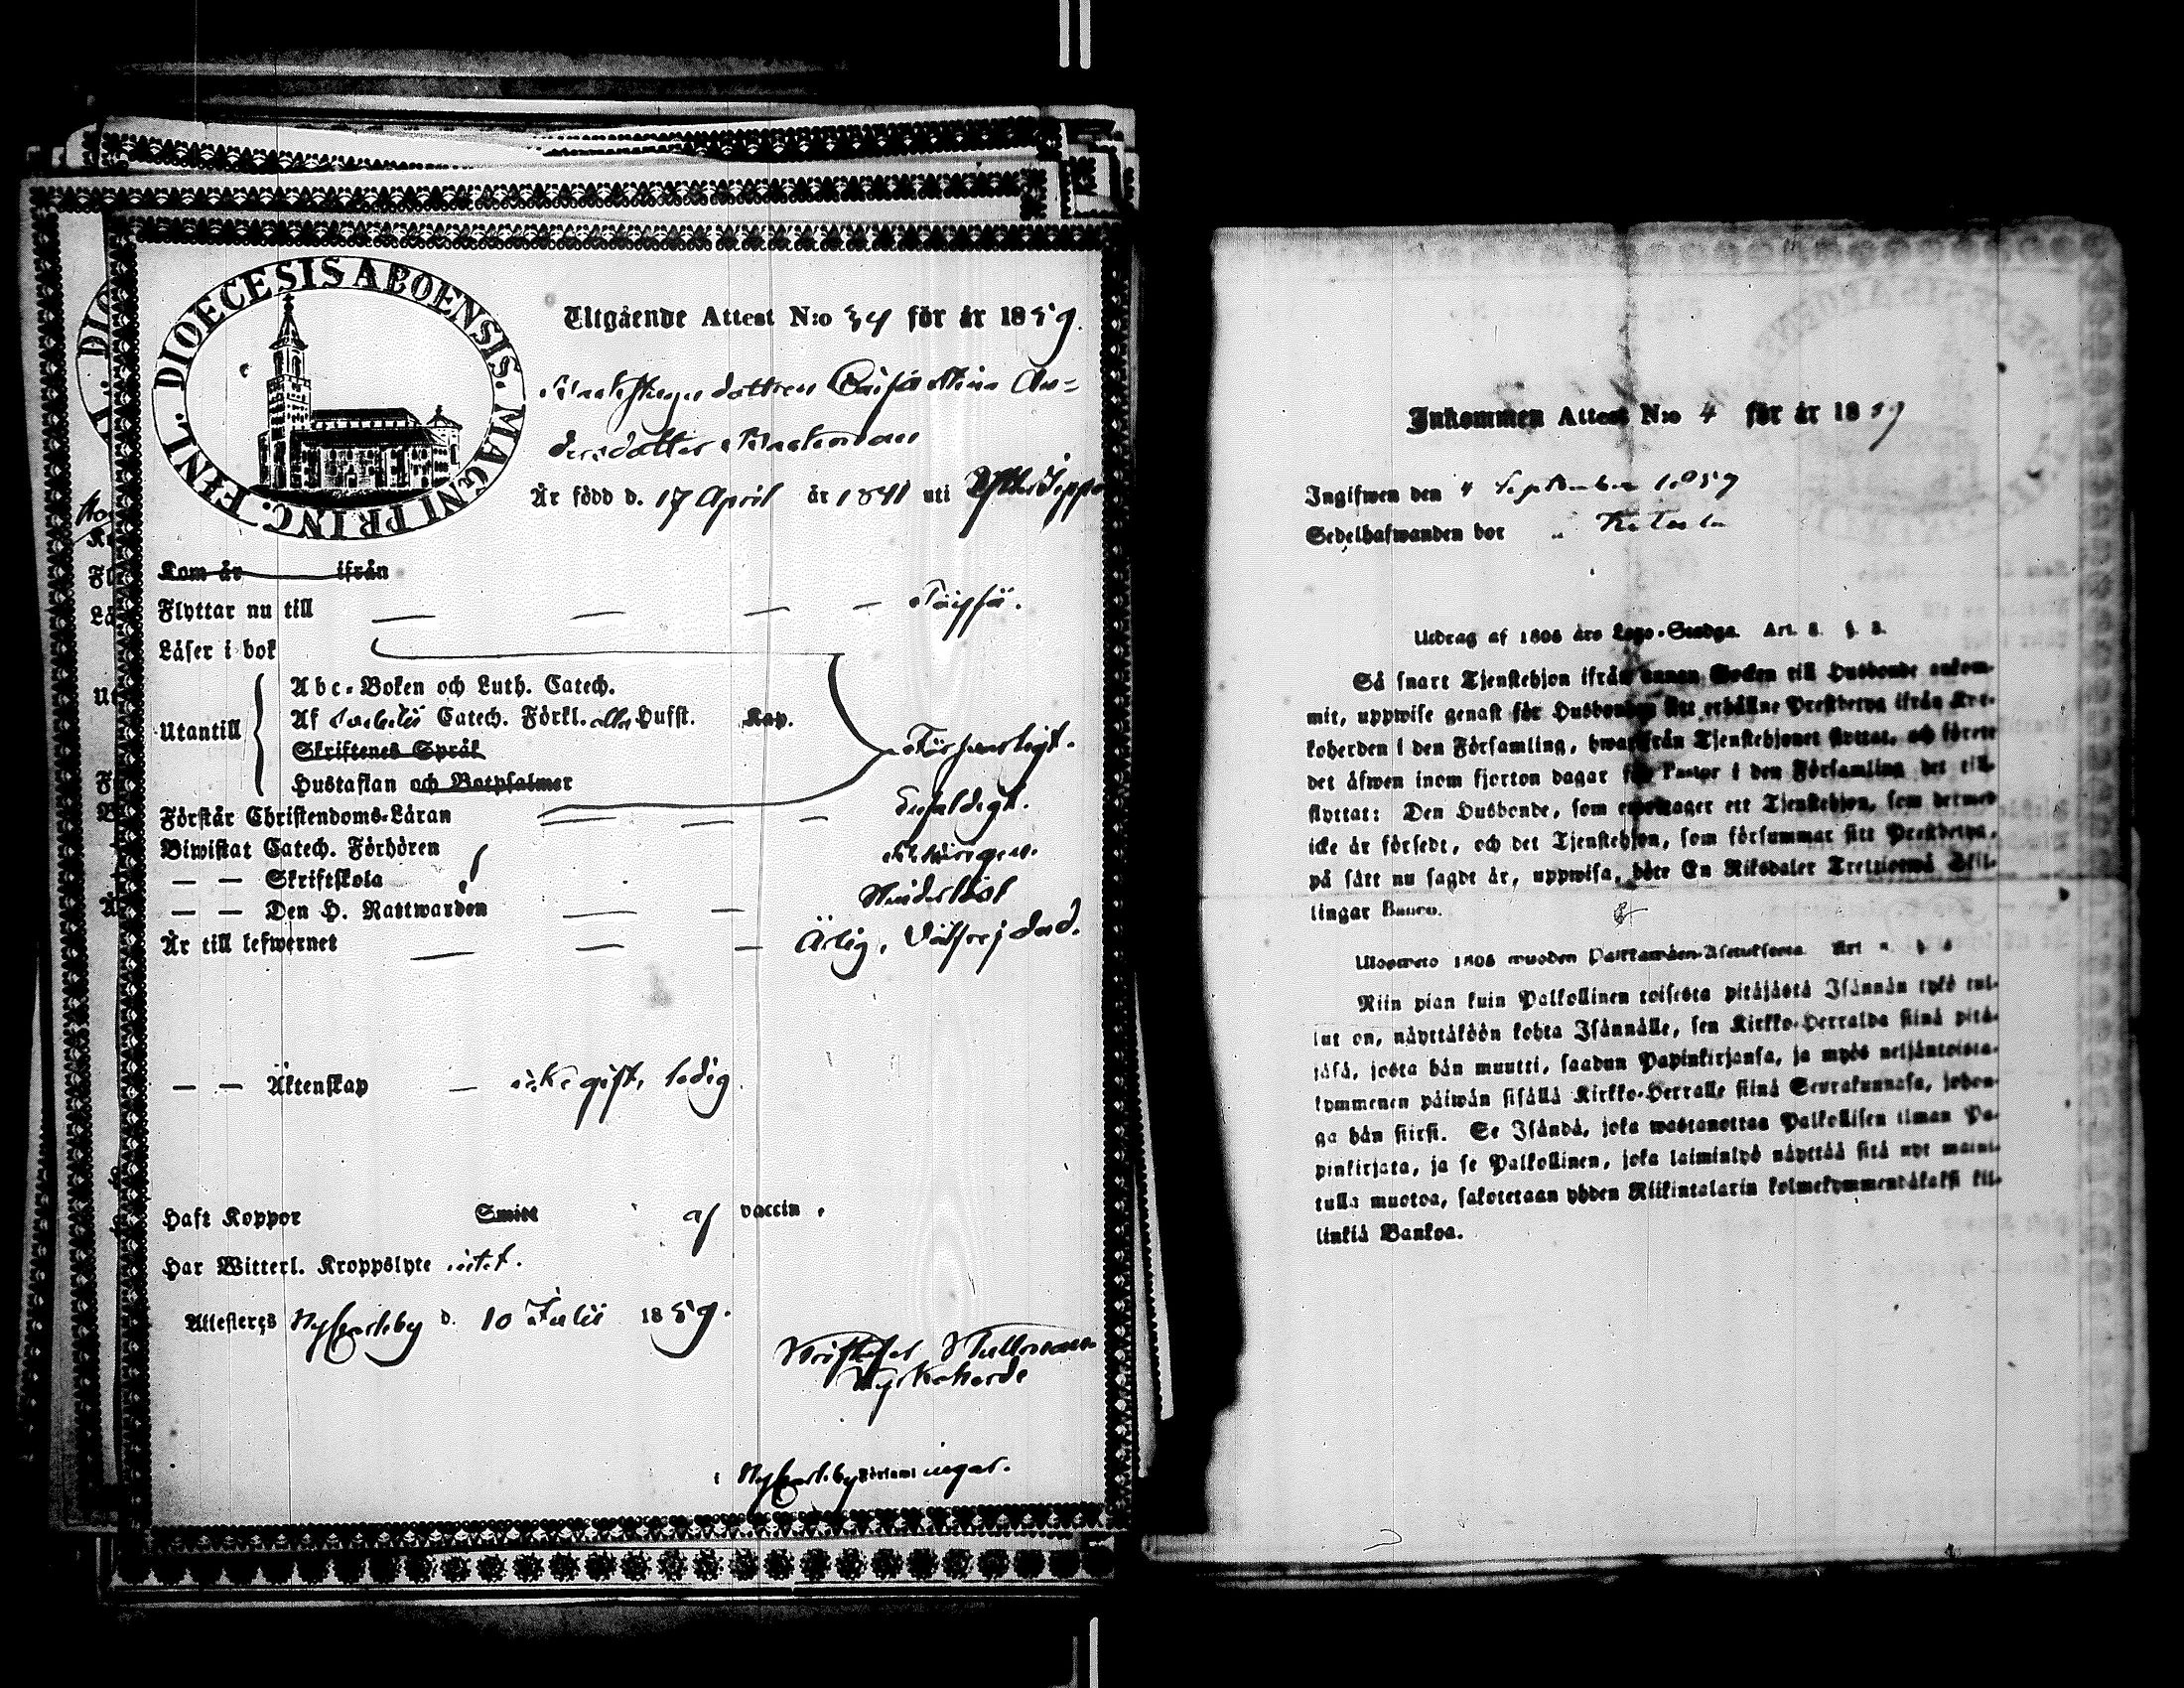 DIOECESIS ABOENSIS. MAGNI PRINC. FINL.
Utgående Attest N:o 34 för år 1859.
dottren Caisa Stina An=
dersdotter
Är född d. 17 April år 1841 uti Ytterjeppo
Kom år ifrån
Flyttar nu till — — — —
Läser i bok
Utantill
Abc-Boken och Luth. Catech.
Af Catech. Förkl. eller Hufst. Kap.
Skriftenes Språk
Hustaflan och Botpsalmer
Försvarligt.
Förstår Christendoms-Läran — — — Enfaldigt.
Biwistat Catech. Förhören
— — Skriftskola
— — Den H. Nattwarden — —
Är till lefwernet — — — Ärlig,
— — Äktenskap — icke gift, ledig.
Haft Koppor Smitt af vaccin,
Har Witterl. Kroppslyte intet.
Attesteras NyCarleby d. 10 Julii 1859.
Kyrkoherde
i NyCarleby Församlingar.
Inkommen Attest N:o 4 för år 1859
Ingifwen den 4 September 1859
Sedelhafwanden bor
Utdrag af 1805 års Lego-Stadga. Art. 3. §. 3.
Så snart Tjenstehjon ifrån annan Socken till Husbonde ankom-
mit, uppwise genast för Husbonden sitt erhållne Prestbetyg ifrån Kyr-
koherden i den Församling, hwarifrån Tjenstehjonet flyttat, och förete
det äfwen inom fjorton dagar för Pastor i den Församling det till-
flyttat: Den Husbonde, som emottager ett Tjenstehjon, som dermed
icke är försedt, och det Tjenstehjon, som försummar sitt Prestbetyg,
på sätt nu sagdt är, uppwisa, böte En Riksdaler Trettiotwå Skil-
lingar Banco.
Ulosweto 1805 wuoden Palkkawäen-Asetuksesta. Art §.
Niin pian kuin Palkollinen toisesta pitäjästä Isännän tykö tul-
lut on, näyttäköön kohta Isännälle, sen Kirkko-Herralda siinä pitä-
jäsä, josta hän muutti, saadun Papinkirjansa, ja myös neljäntoista-
kymmenen päiwän sisällä Kirkko-Herralle siinä Seurakunnasa, johon-
ga hän siirsi. Se Isändä, joka wastanottaa Palkollisen ilman Pa-
pinkirjata, ja se Palkollinen, joka laiminlyö näyttää sitä nyt maini-
tulla muotoa, sakotetaan yhden Riikintalarin kolmekymmendäkaksi kil-
linkiä Bankoa.